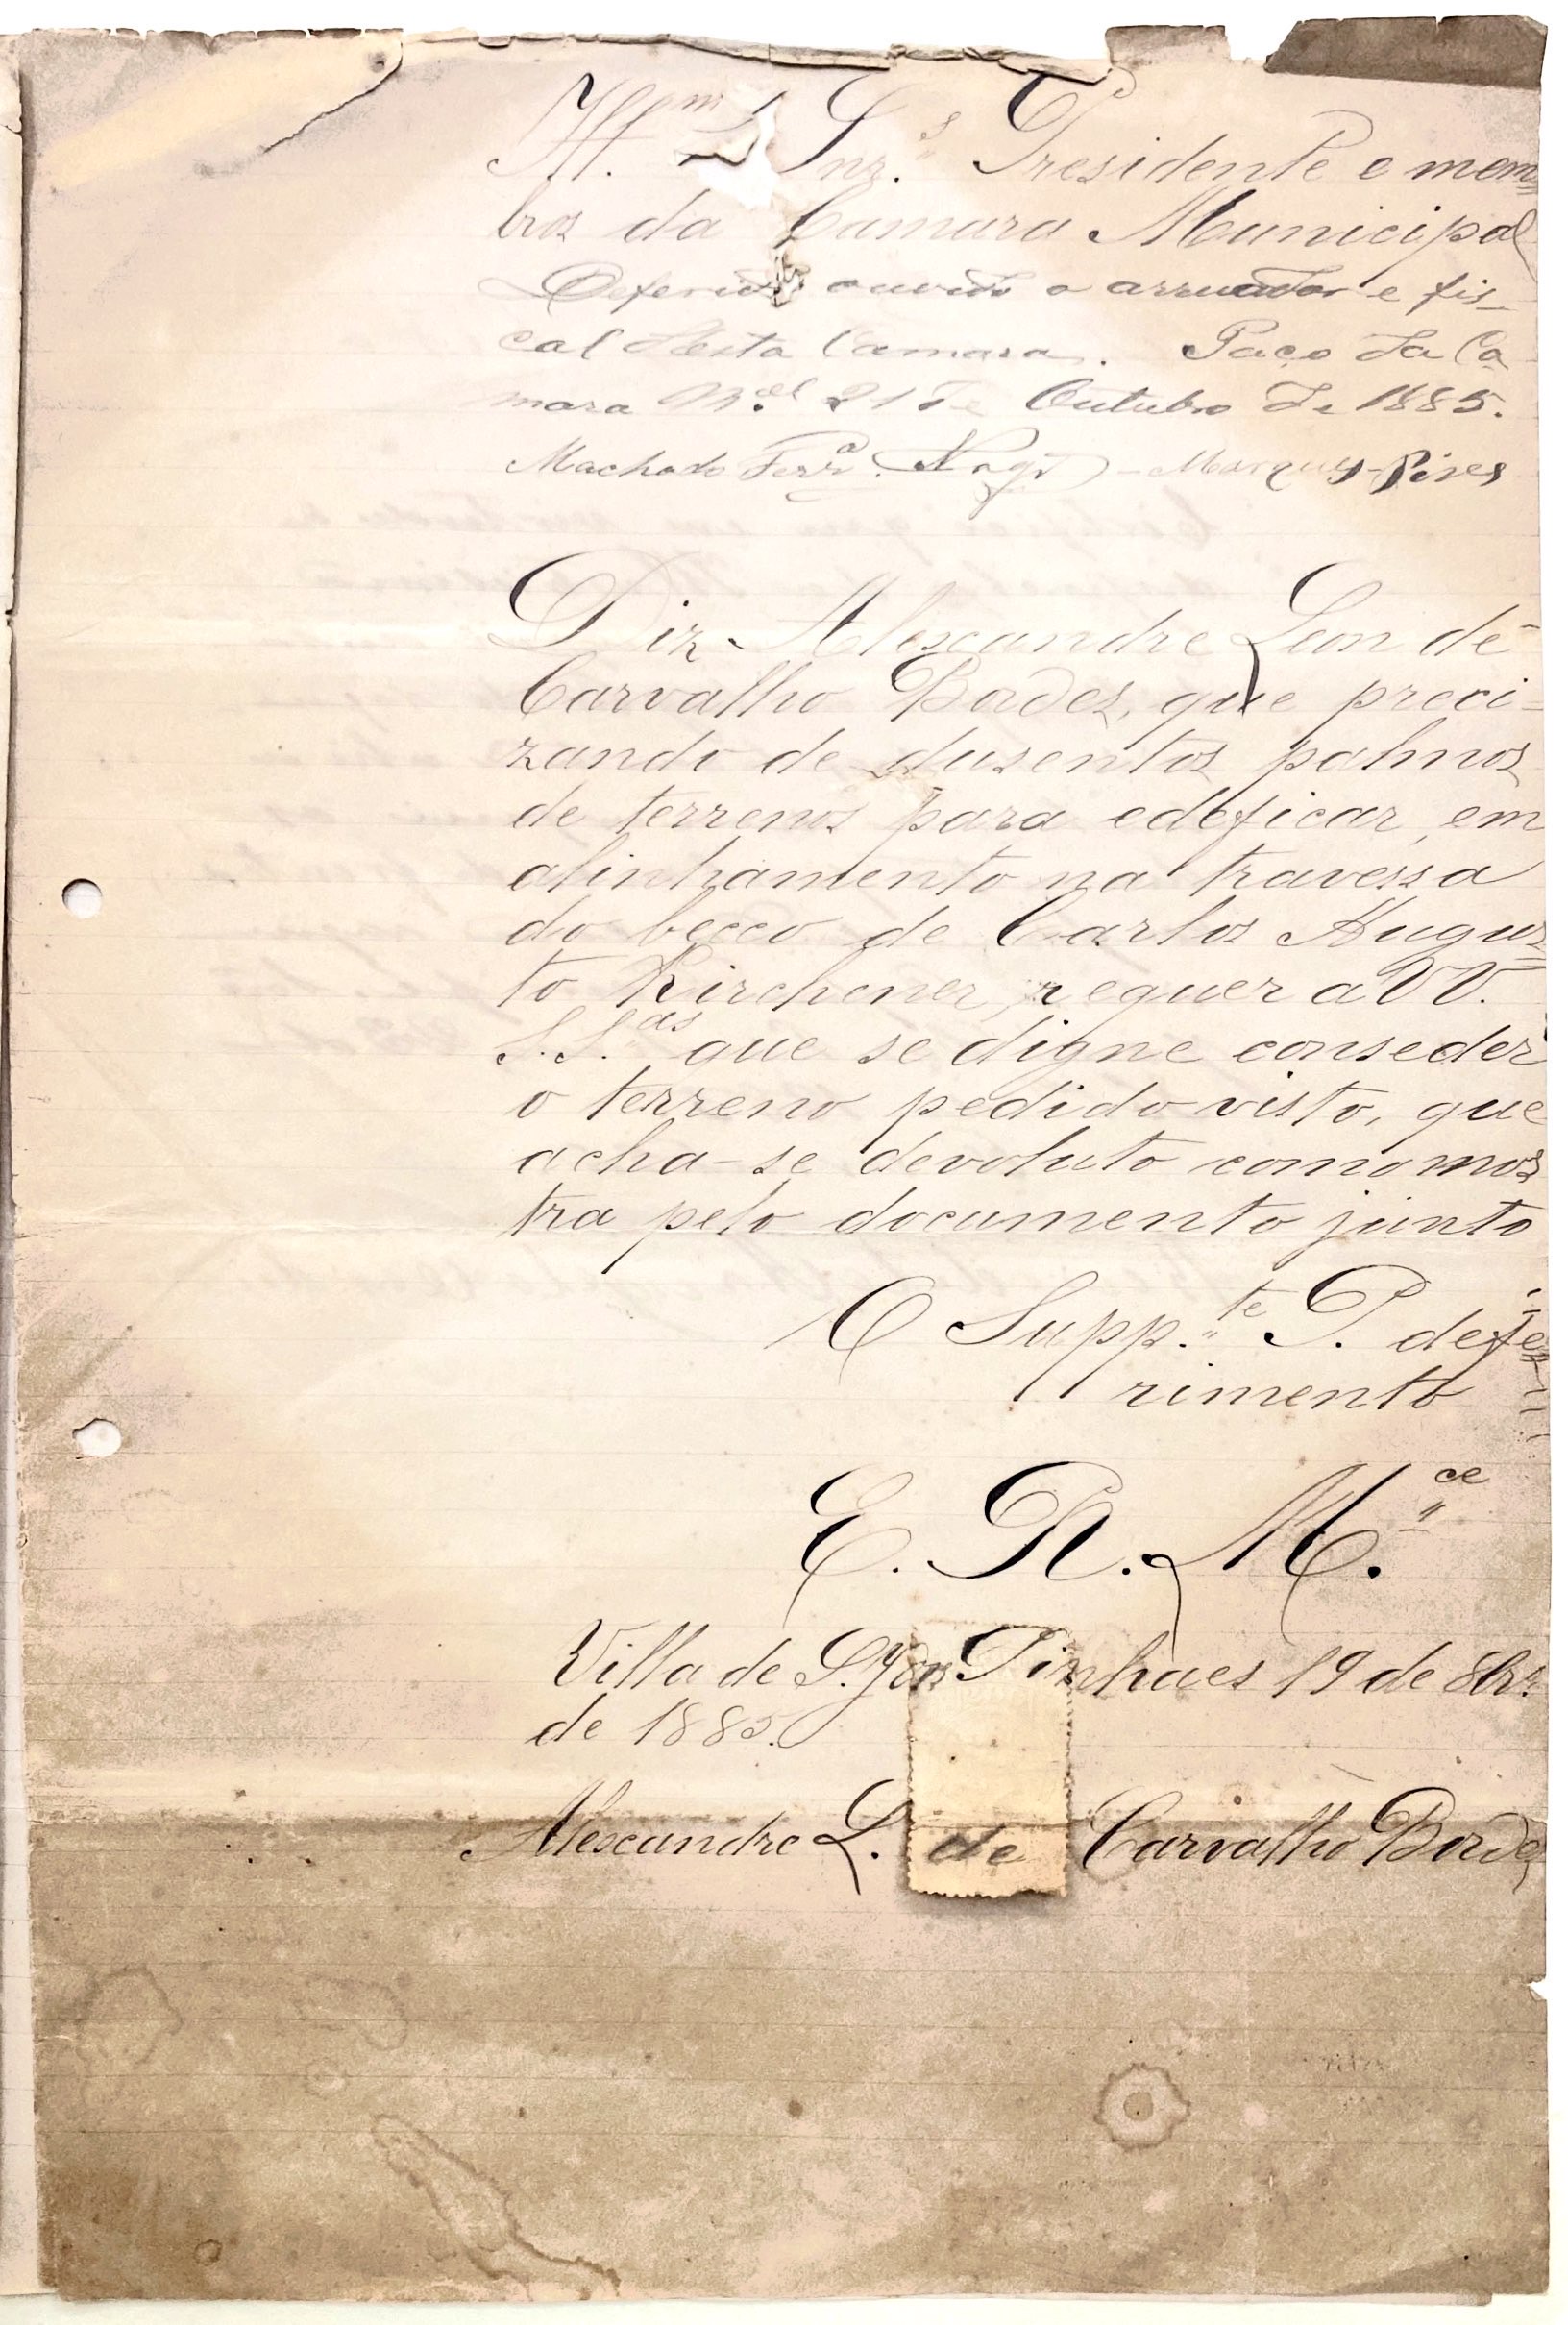 Ill.m Snr.s Presidente e mem=
bros da Camara Municipal
Deferido ouvido o arruador e fis-
cal desta Camara. Paço da Ca
mara M.al 21 de Outubro de 1885.
Machado Ferr.a - Marques - Pires
Diz Alexandre Leon de
Carvalho Bordes, que preci=
zando de dusentos palmos
de terrenos para edeficar, em
alinhamento na travessa
do becco de Carlos Augus=
to Kirchener, requer a VV.
S.S.as que se digne conseder
o terreno pedido visto, que
acha-se devoluto como mos
tra pelo documento junto
O Supp.te P. defe=
rimento
E. R. M.ce
Villa de S. João Pinhaes 19 de 8br.o
de 1885.
Alexandre L. de Carvalho Bordes